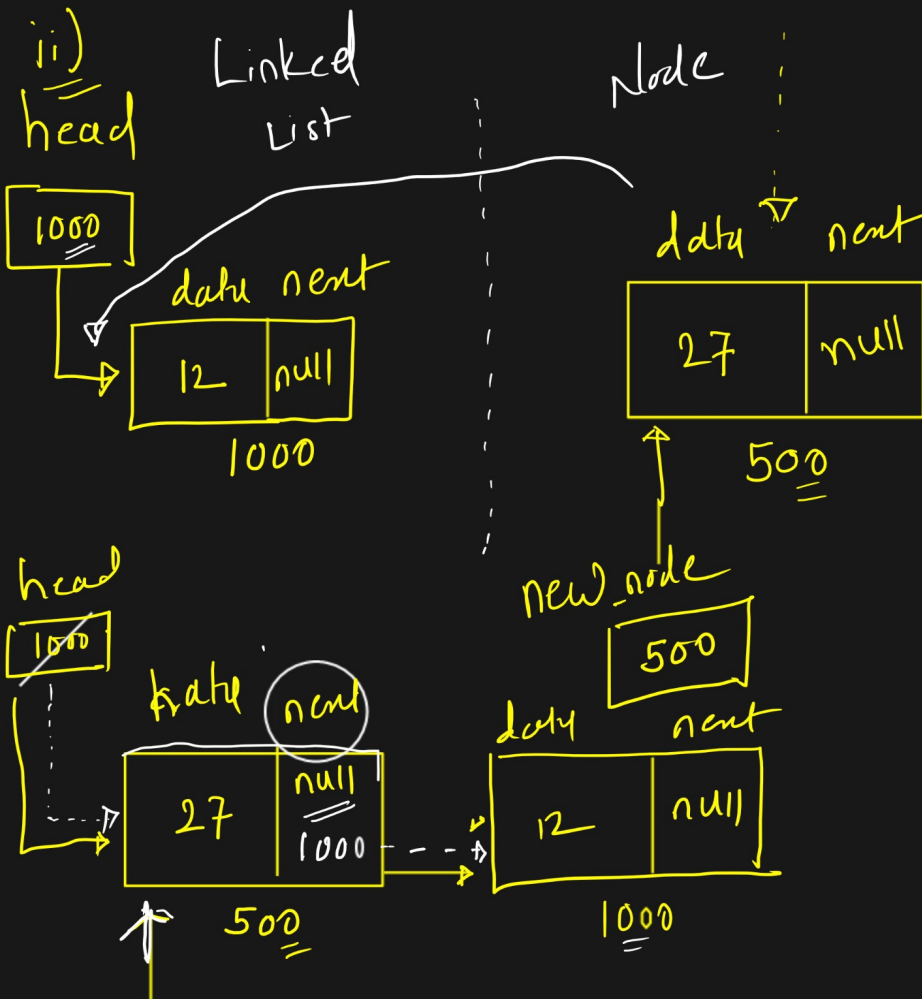 ii)
head
Linked
List
Node
1000
data next
12 null
1000
data next
27 null
500
head
1000
new_node
500
data next
27 null
1000
500
data next
12 null
1000